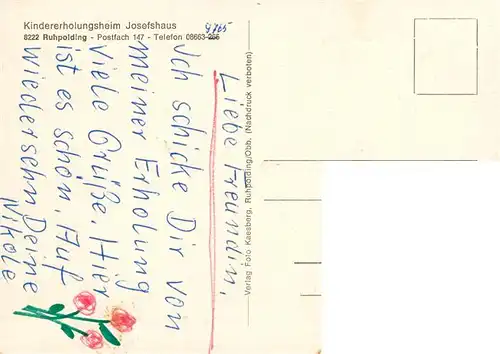 Kindererholungsheim Josefshaus
8222 Ruhpolding - Postfach 147 - Telefon 08663-266
9765
Liebe Freundin,
Ich schicke Dir von
meiner Erholung
viele Grüße. Hier
ist es schön. Auf
Wiedersehn Deine
Nikole
Verlag Foto Kaesberg, Ruhpolding/Obb. (Nachdruck verboten)